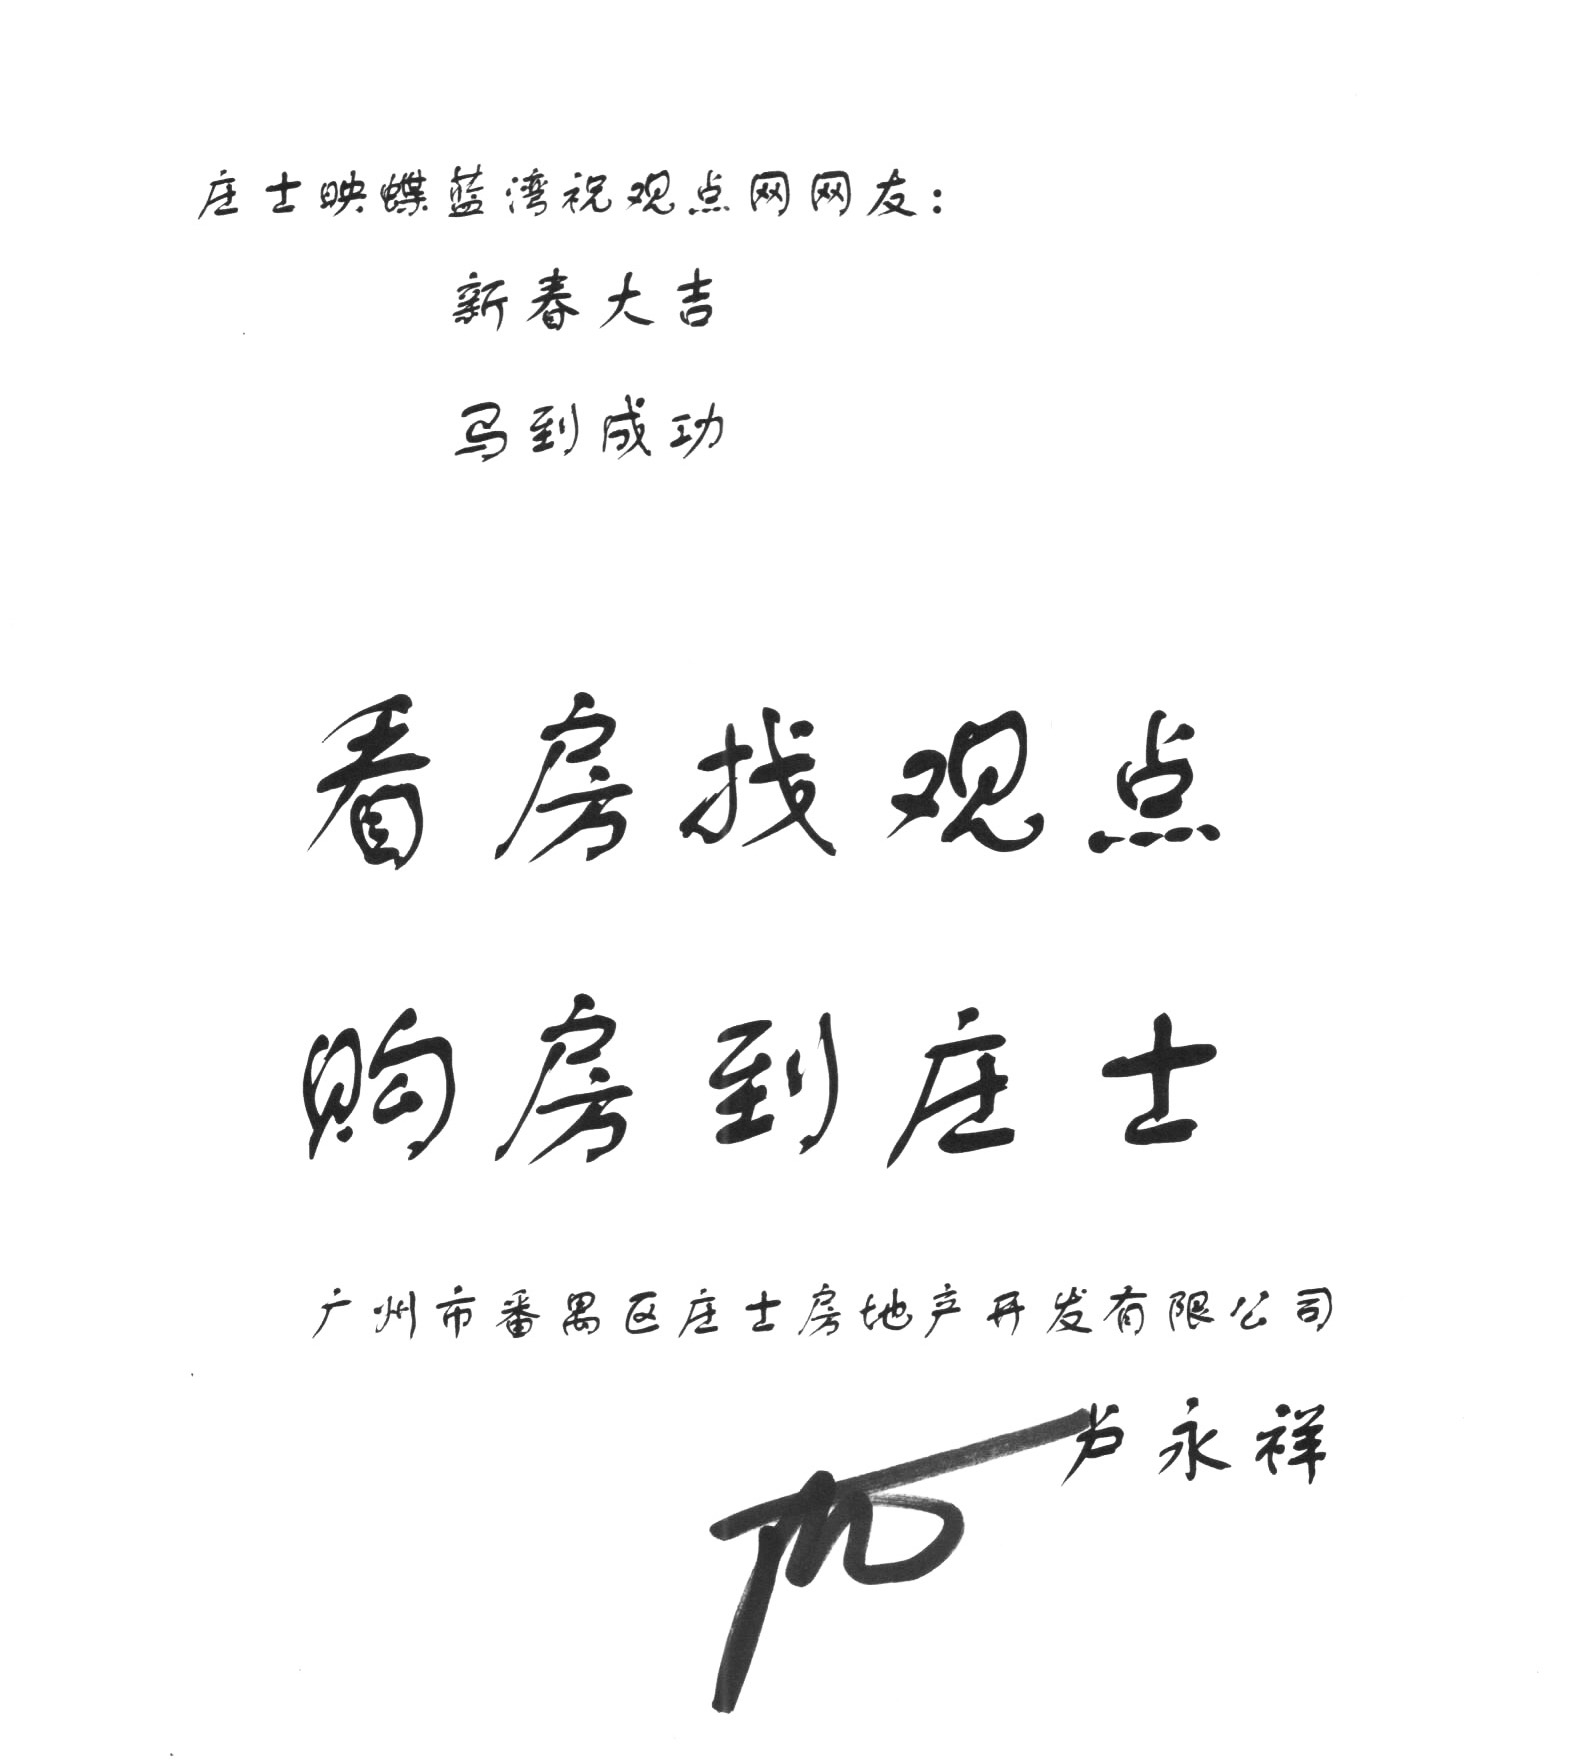 庄士映蝶蓝湾祝观点网网友：
新春大吉
马到成功
看房找观点
购房到庄士
广州市番禺区庄士房地产开发有限公司
卢永祥